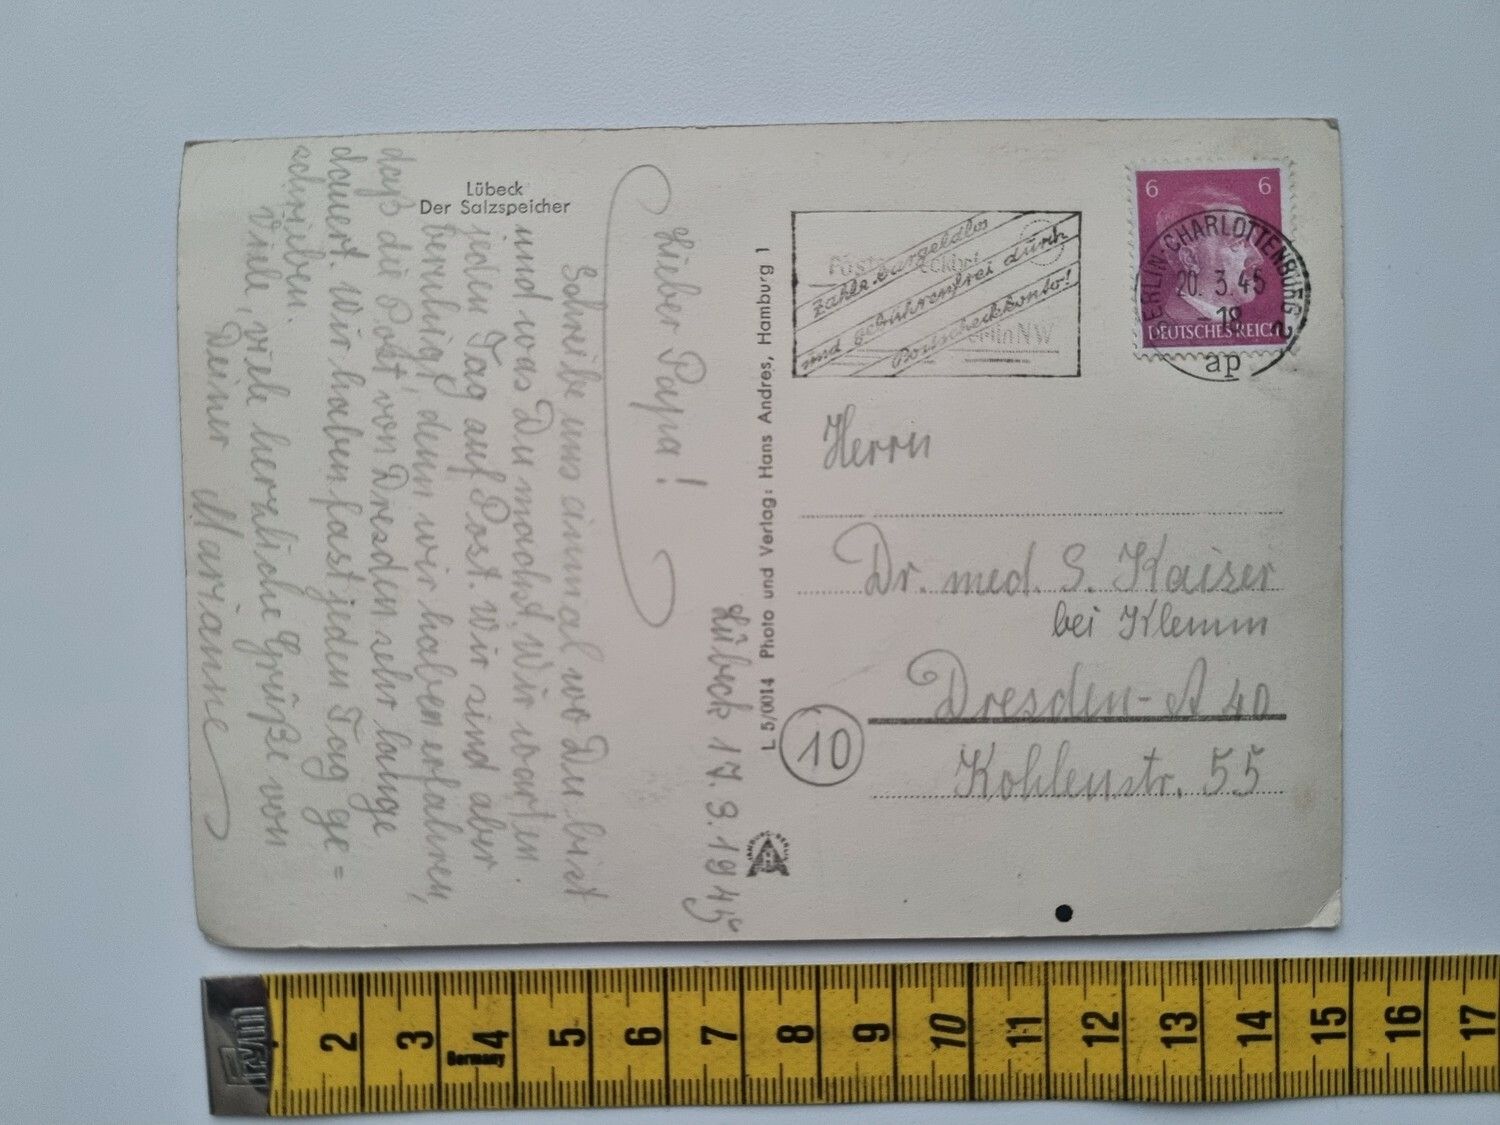 Lübeck
Der Salzspeicher
Lübeck 17.3.1945
Lieber Papa!
Schreibe uns einmal wo Du bist
und was Du machst. Wir warten
jeden Tag auf Post. Wir sind aber
beruhigt, denn wir haben erfahren,
daß die Post von Dresden sehr lange
dauert. Wir haben fast jeden Tag ge=
schrieben.
Viele, viele herzliche Grüße von
Deiner Marianne
L 5/0014 Photo und Verlag: Hans Andres, Hamburg 1
HAMBURG-BERLIN
Zahle bargeldlos
und gebührenfrei durch
Postscheckkonto!
Berlin NW
6 6
DEUTSCHES REICH
BERLIN-CHARLOTTENBURG 2
20.3.45
-18
ap
Herrn
Dr. med. S. Kaiser
bei Klemm
10
Dresden-A 40
Kohlenstr. 55
2 3 4 5 6 7 8 9 10 11 12 13 14 15 16 17
Germany